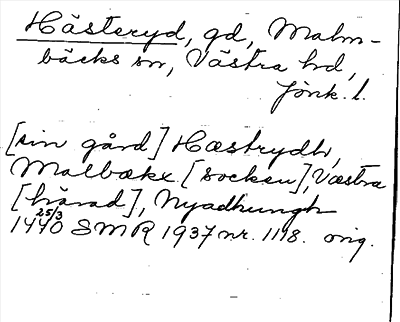 Hästeryd, gd, Malm-
bäcks sn, Västra hd,
Jönk. l.
[sin gård] Hæstrydh,
Malbækx [socken], Væstra
[härad], Nyadhungh
1440 25/3 SMR 1937 nr. 1118. orig.